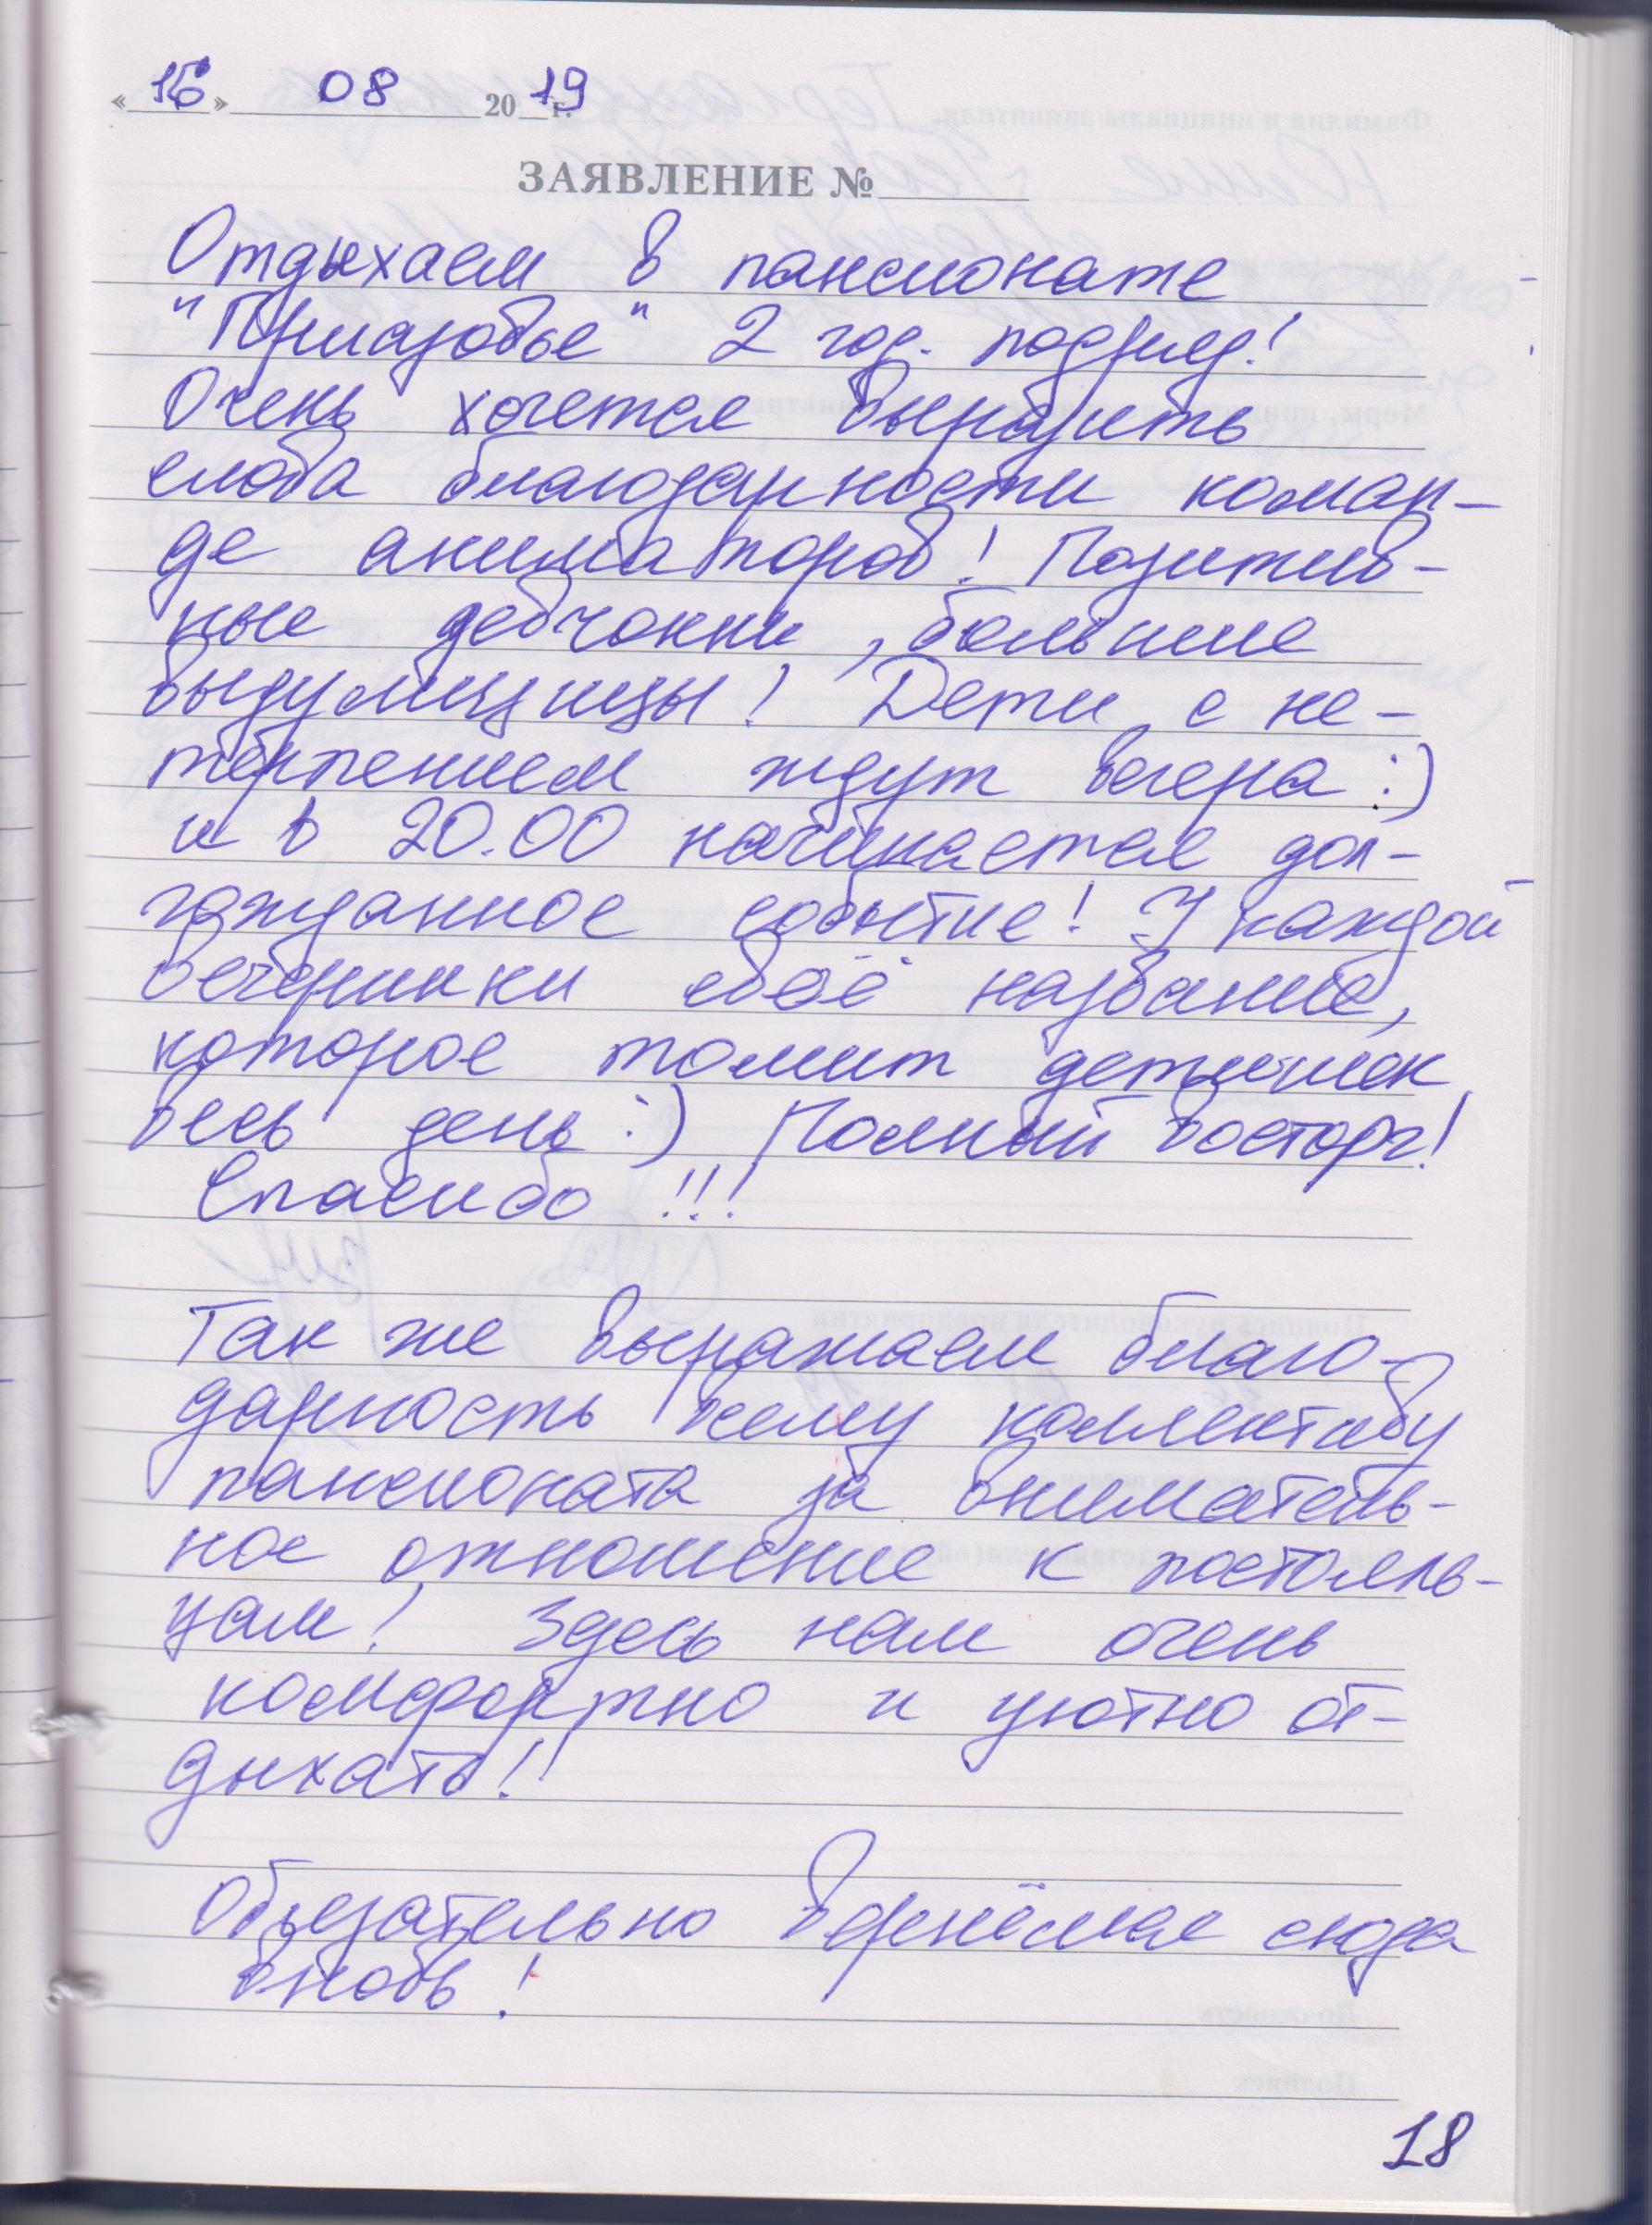 «16» 08 2019г.
ЗАЯВЛЕНИЕ №
Отдыхаем в пансионате
"Приазовье" 2 год. подряд!
Очень хочется выразить
слова благодарности коман-
де аниматоров! Позитив-
ные девчонки, большие
выдумщицы! Дети с не-
терпением ждут вечера :)
и в 20.00 начинается дол-
гожданное событие! У каждой
вечеринки своё название,
которое томит детишек
весь день :) Полный восторг!
Спасибо !!!
Так же выражаем благо-
дарность всему коллективу
пансионата за вниматель-
ное отношение к постояль-
цам! Здесь нам очень
комфортно и уютно от-
дыхать!
Обьезательно вернёмся сюда
вновь!
18